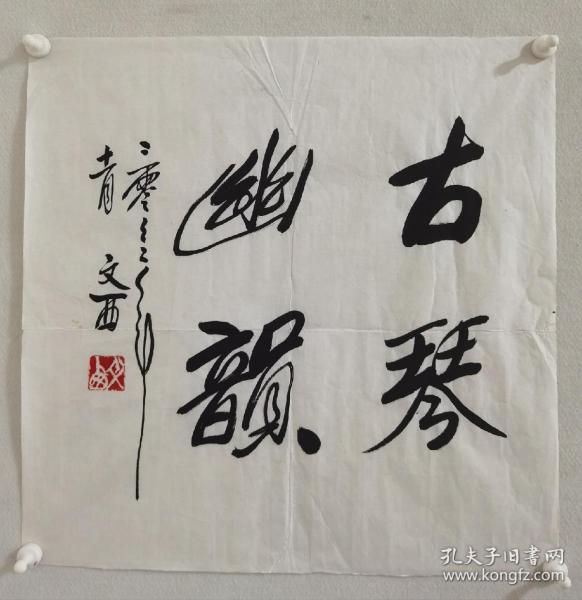 古琴
幽韻
二零
青
文西
孔夫子旧書网
www.kongfz.com